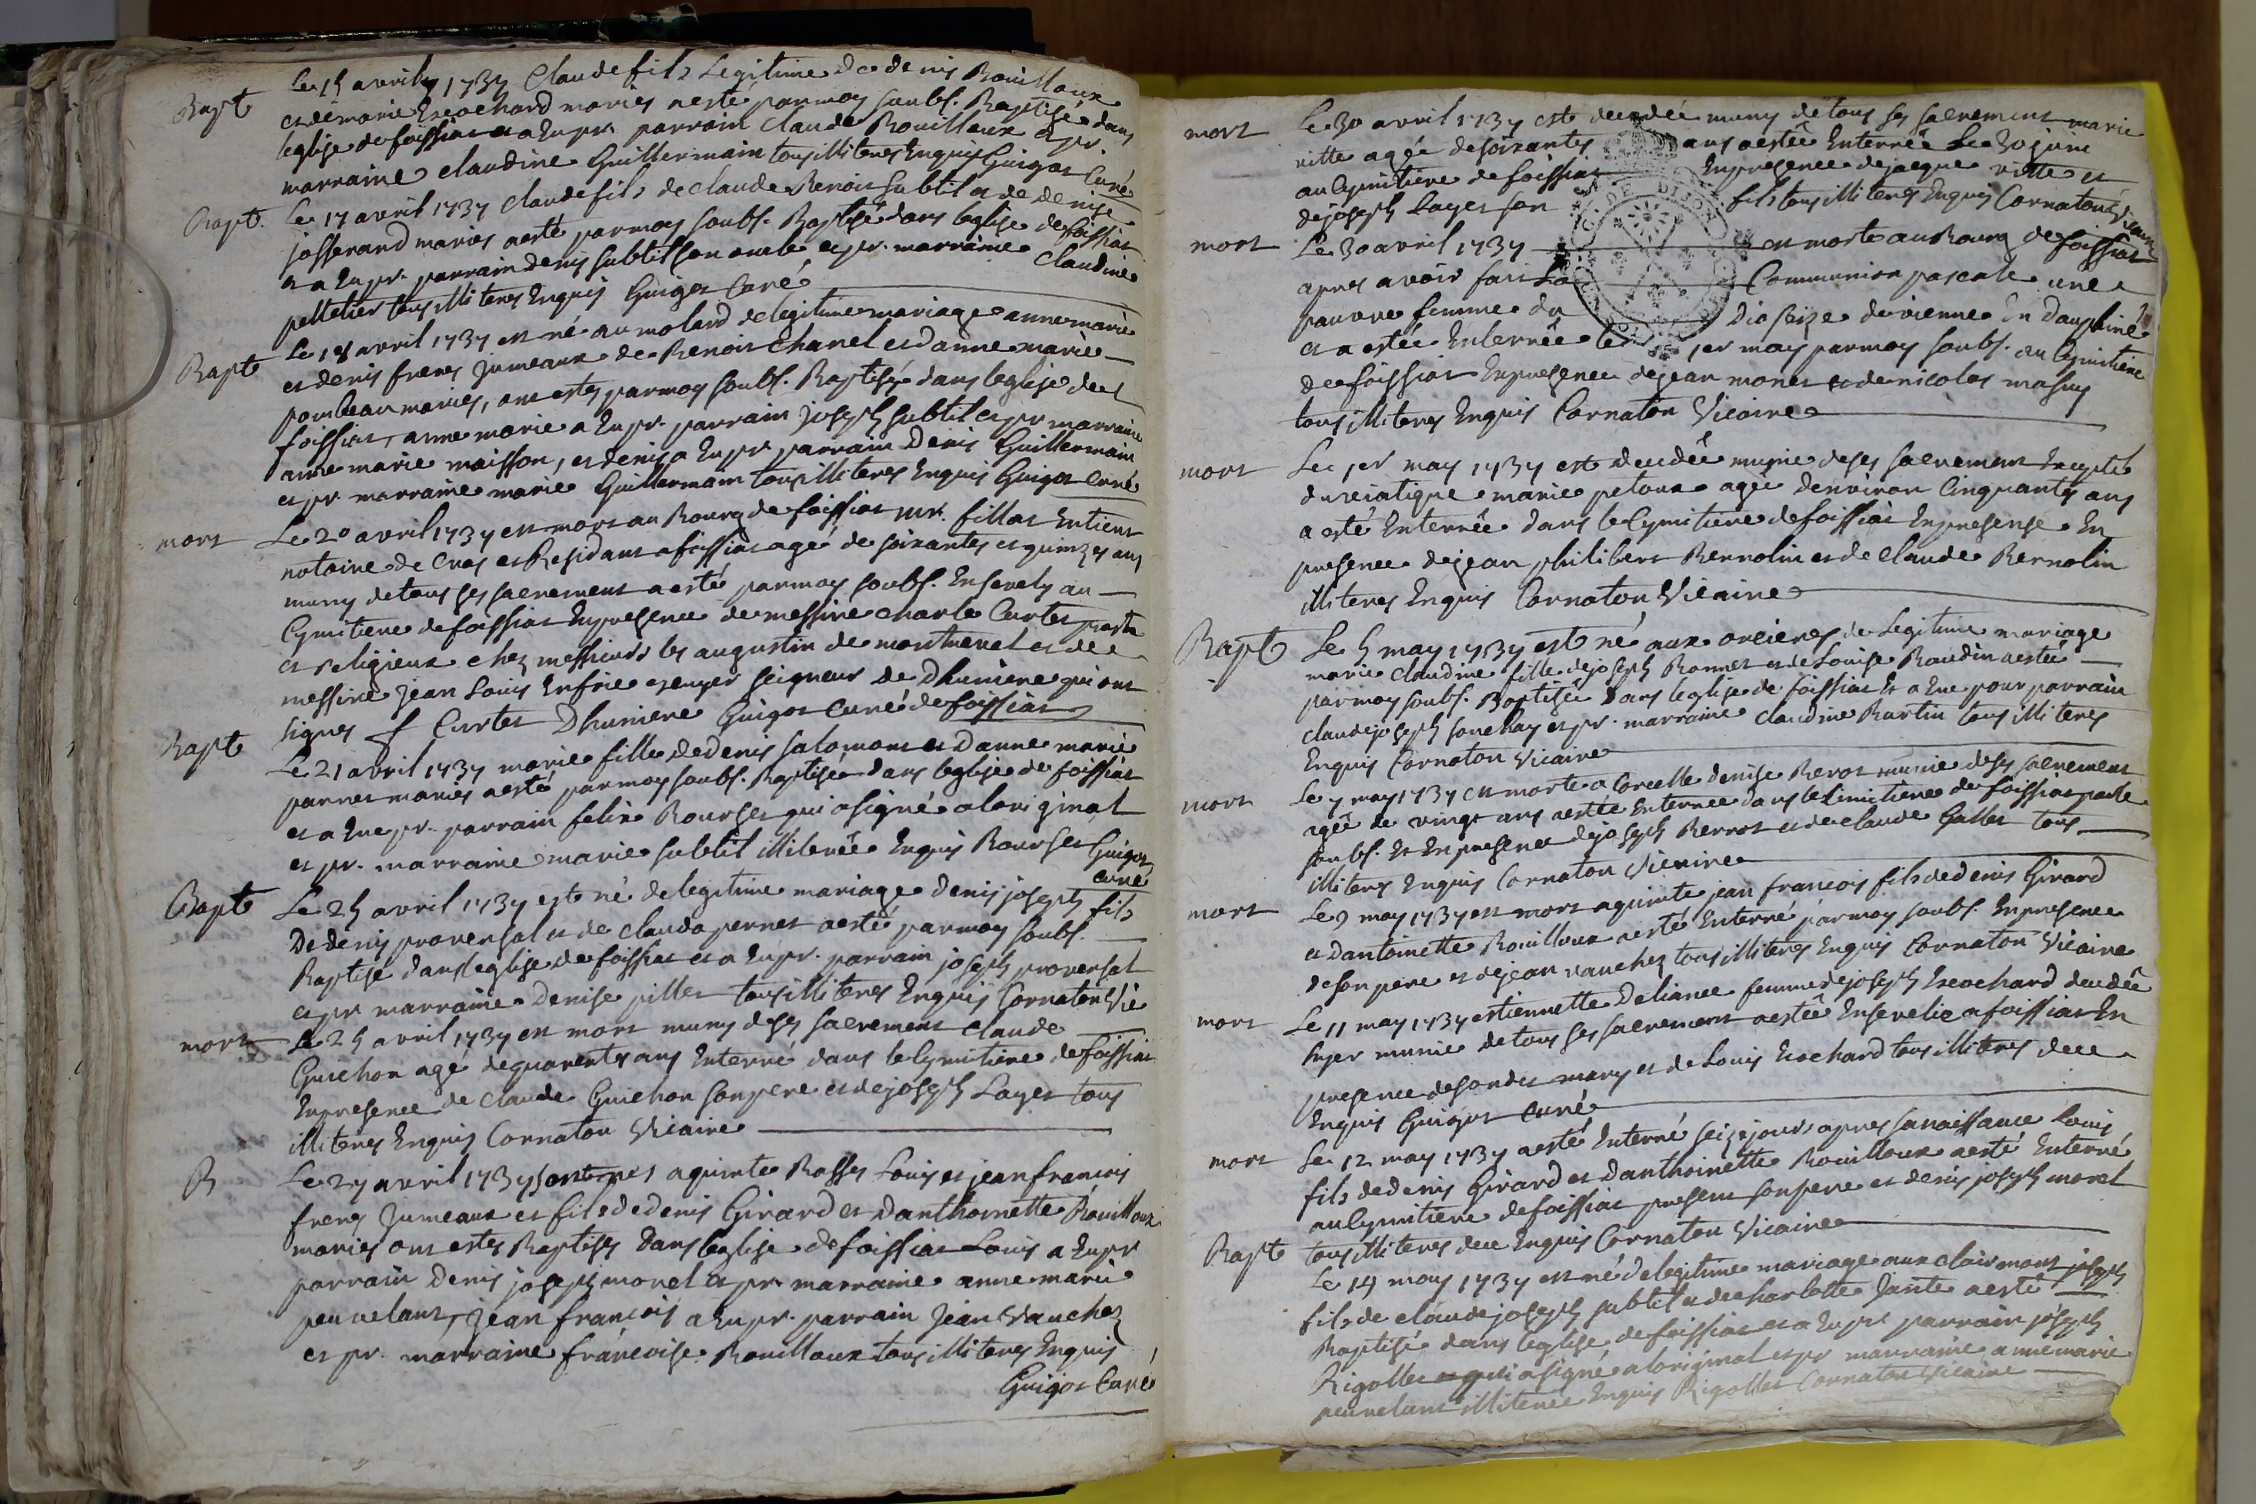 Bapt Le 15 avril 1737 Claude fils Legitime de denis Rouilloux
et de marie Escochard mariés a esté par moy soubs. Baptisé dans
leglise de foissiat et a Eu pr. parrain Claude Rouilloux et pr.
marraine claudine Guillermain tous illiteres Enquis Guigot Curé
Bapt. Le 17 avril 1737 claude fils de claude Benoit subtil et de denise
josserand mariés a esté par moy soubs. Baptisé dans leglise de foissiat
et a Eu pr. parrain denis subtil son oncle et pr. marraine claudine
pelletier tous illiteres Enquis Guigot Curé
Bapt Le 18 avril 1737 est né au molard de legitime mariage anne marie
et denis freres Jumeaux de Benoit Chanel et danne marie
mariés, ont estés par moy soubs. Baptisés dans leglise de
foissiat, anne marie a Eu pr. parrain joseph subtil et pr marraine
anne marie maisson, et denis a Eu pr parrain Denis Guillermain
et pr marraine marie Guillermain tous illiteres Enquis Guigot Curé
mort Le 20 avril 1737 est mort au Bourg de foissiat mr. fillot
notaire de et Residant a foissiat agé de soixantes et quinzes ans
muny de tous ses sacrement a esté par moy soubs. Ensevely au
Cymitiere de foissiat En presence de messire charle Curtet
et religieux chez messieurs les augustin de montrevel et de
messire jean Louis Enfrie escuyer seigneur de Dhumiere qui ont
signes f Curtet Dhumiere Guigot curé de foissiat
Bapt Le 21 avril 1737 marie fille de denis salomont et danne marie
pannet mariés a esté par moy soubs. Baptisée dans leglise de foissiat
et a Eue pr. parrain felix Bourset qui a signé a loriginal
et pr. marraine marie subtil illiterée Enquis Bourset Guigot
curé
Bapt Le 25 avril 1737 est né de legitime mariage denis joseph fils
De denis provensal et de clauda pernet a esté par moy soubs.
Baptisé dans leglise de foissiat et a Eu pr. parrain joseph provensal
et pr marraine Denise pillet tous illiteres Enquis Cornaton Vic
mort Le 25 avril 1737 est mort muny de ses sacrement claude
Guichon agé de quarentes ans Enterré dans le Cymitiere de foissiat
En presence de claude Guichon son pere et de joseph Layet tous
illiteres Enquis Cornaton Vicaire
B Le 27 avril 1737 sont nés a quinte Basses Louis et jean francois
freres Jumeaux et fils de denis Girard et Danthoinette Rouilloux
mariés ont estés Baptisés dans leglise de foissiat Louis a Eu pr
parrain denis joseph morel et pr. marraine anne marie
peuvelant, jean francois a Eu pr. parrain Jean Vauchez
et pr. marraine francoise Rouilloux tous illiteres Enquis
Guigot Curé
mort Le 30 avril 1737 est decedée muny de tous ses sacrement marie
vitte agée de soixantes ans a esté Enterrée Le
au Cymitiere de foissiat En presence de jaque vitte et
de joseph Layet son fils tous illiteres Enquis Cornaton
mort Le 30 avril 1737 est morte au Bourg de foissiat
apres avoir fait sa Communion pascale une
pauvre femme du Diosaize de vienne En Dauphiné
et a estée Enterrée le 1er may par moy soubs. au Cymitiere
de foissiat En presence de jean monet et de nicolas
tous illiteres Enquis Cornaton Vicaire
mort Le 1er may 1737 est decedée munie de ses sacrement Excepté
du viatique marie petoux agée denviron Cinquantes ans
a esté Enterrée dans le Cymitiere de foissiat En presense En
presence de jean philibert Bernolin et de Claude Bernolin
illiteres Enquis Cornaton Vicaire
Bapt Le 5 may 1737 est né aux orcieres de Legitime mariage
marie claudine fille de joseph Bonnet et de Louise Baudin a esté
par moy soubs. Baptisée dans leglise de foissiat Et a Eue pour parrain
claude joseph et pr. marraine claudine Bartin tous illiteres
Enquis Cornaton Vicaire
mort Le 7 may 1737 est morte a Corcelle denise munie de ses sacrement
agée de vingt ans a estée Enterrée dans le Cimitiere de foissiat par le
soubs. Et En presence de joseph et de claude Gallet tous
illiteres Enquis Cornaton Vicaire
mort Le 9 may 1737 est mort a quinte jean francois fils de denis Girard
et dantoinette Rouilloux a esté Enterré par moy soubs. En presence
de son pere et de jean vauchez tous illiteres Enquis Cornaton Vicaire
mort Le 11 may 1737 estiennette Deliance femme de joseph Escochard decedée
munie de tous ses sacrement a estée Ensevelie a foissiat En
presence de son dit mary et de Louis Escochard tous illiteres de ce
Enquis Guigot curé
mort Le 12 may 1737 a esté Enterré seize jours apres sa naissance Louis
fils de denis Girard et danthoinette Rouilloux a esté Enterré
au Cymitiere de foissiat present son pere et denis joseph morel
tous illiteres de ce Enquis Cornaton Vicaire
Bapt Le 14 may 1737 est né de legitime mariage aux clairmont joseph
fils de claude joseph subtil et de charlotte Jante a esté
Baptisé dans leglise de foissiat et a Eu pr parrain joseph
Rigollet qui a signé a loriginal et pr marraine anne marie
peuvelant illiterée Enquis Rigollet Cornaton Vicaire